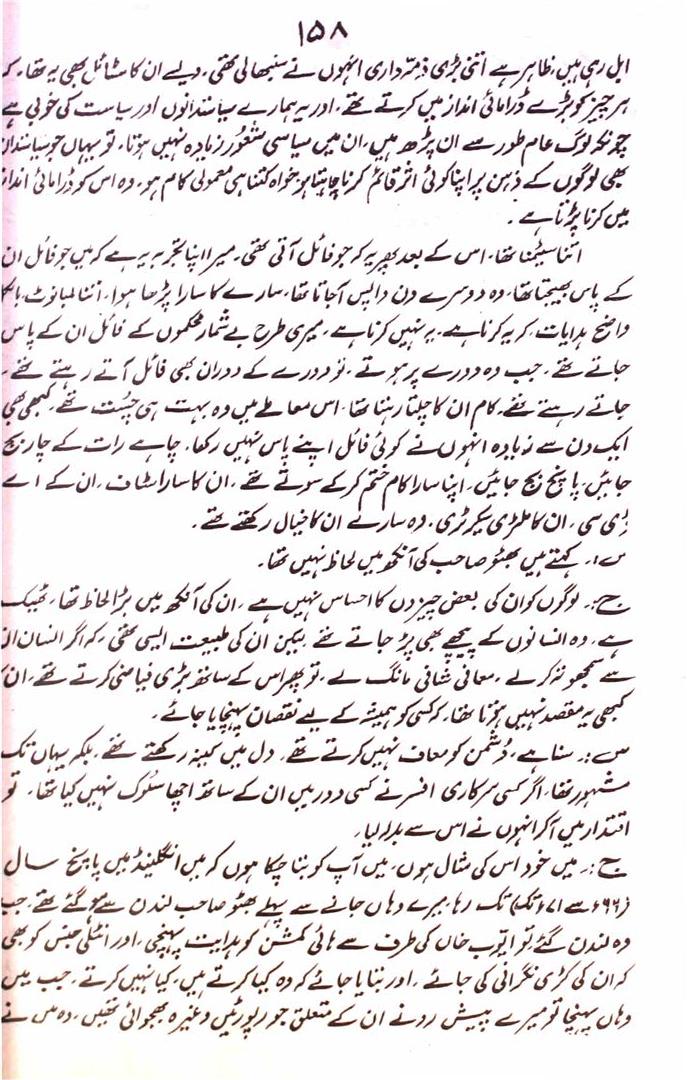 ۱۵۸
ابل رہی ہیں، ظاہر ہے اتنی بڑی ذمہ داری انہوں نے سنبھالی تھی۔ ویسے ان کا سٹائل بھی یہ تھا، کہ
ہر چیز کو بڑے ڈرامائی انداز میں کرتے تھے، اور یہ ہمارے سیاستدانوں اور ریاست کی خوبی ہے
چونکہ لوگ عام طور سے ان پڑھ ہیں، ان میں سیاسی شعور زیادہ نہیں ہوتا، تو یہاں جو سیاستدان
بھی لوگوں کے ذہن پر اپنا کوئی اثر قائم کرنا چاہتا ہو خواہ کتنا ہی معمولی کام ہو، وہ اس کو ڈرامائی انداز
میں کرنا پڑتا ہے۔
اتنا سیٹنا تھا، اس کے بعد پھر یہ کہ جو فائل آتی تھی، میرا اپنا تجربہ یہ ہے کہ میں جو فائل ان
کے پاس بھیجتا تھا، وہ دوسرے دن واپس آجاتا تھا، سارے کا سارا پڑھا ہوا، اتنا لمبا نوٹ بالکل
واضح ہدایات، کہ یہ کرنا ہے، یہ نہیں کرنا ہے، میری طرح بے شمار محکموں کے فائل ان کے پاس
جاتے تھے۔ جب وہ دورے پر ہوتے، تو دورے کے دوران بھی فائل آتے رہتے تھے،
جاتے رہتے تھے، کام ان کا چلتا رہتا تھا، اس معاملے میں وہ بہت ہی چست تھے، کبھی بھی
ایک دن سے زیادہ انہوں نے کوئی فائل اپنے پاس نہیں رکھا۔ چاہے رات کے چار بج
جائیں، پانچ بج جائیں، اپنا سارا کام ختم کر کے سوتے تھے، ان کا سارا سٹاف، ان کے اے
ڈی سی، ان کا ملٹری سیکرٹری، وہ سارے ان کا خیال رکھتے تھے۔
س:۔ کہتے ہیں بھٹو صاحب کی آنکھ میں لحاظ نہیں تھا۔
ج:۔ لوگوں کو ان کی بعض چیزوں کا احساس نہیں ہے، ان کی آنکھ میں بڑا لحاظ تھا، ٹھیک
ہے، وہ انسانوں کے پیچھے بھی پڑ جاتے تھے لیکن ان کی طبیعت ایسی تھی، کہ اگر انسان ان
سے سمجھوتہ کر لے، معافی شافی مانگ لے، تو پھر اس کے ساتھ بڑی فیاضی کرتے تھے، ان کا
کبھی یہ مقصد نہیں ہوتا تھا، کہ کسی کو ہمیشہ کے لیے نقصان پہنچایا جائے۔
س:۔ سنا ہے، دشمن کو معاف نہیں کرتے تھے۔ دل میں کینہ رکھتے تھے، بلکہ یہاں تک
مشہور تھا، اگر کسی سرکاری افسر نے کسی دور میں ان کے ساتھ اچھا سلوک نہیں کیا تھا۔ تو
اقتدار میں آکر انہوں نے اس سے بدلہ لیا۔
ج:۔ میں خود اس کی مثال ہوں، میں آپ کو بتا چکا ہوں کہ میں انگلینڈ میں پانچ سال
(۶۶ء سے ۷۱ء تک) تک رہا، میرے وہاں جانے سے پہلے بھٹو صاحب لندن سے ہو گئے تھے، جب
وہ لندن گئے، تو ایوب خاں کی طرف سے ہائی کمشن کو ہدایت پہنچی، اور انٹلی جنس کو بھی
کہ ان کی کڑی نگرانی کی جائے، اور بتایا جائے کہ وہ کیا کرتے ہیں، کیا نہیں کرتے، جب میں
وہاں پہنچا تو میرے پیش رو نے ان کے متعلق جو رپورٹیں وغیرہ بھجوائی تھیں، وہ میں نے